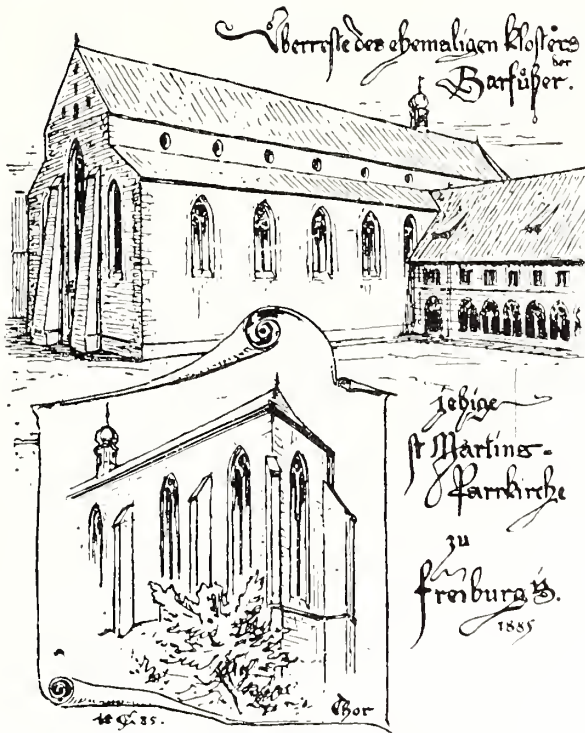 Überreste des ehemaligen Klosters
der
Barfüßer.
jetzige
St Martins-
Pfarrkirche
zu
Freiburg i/B.
1885
Chor
85.